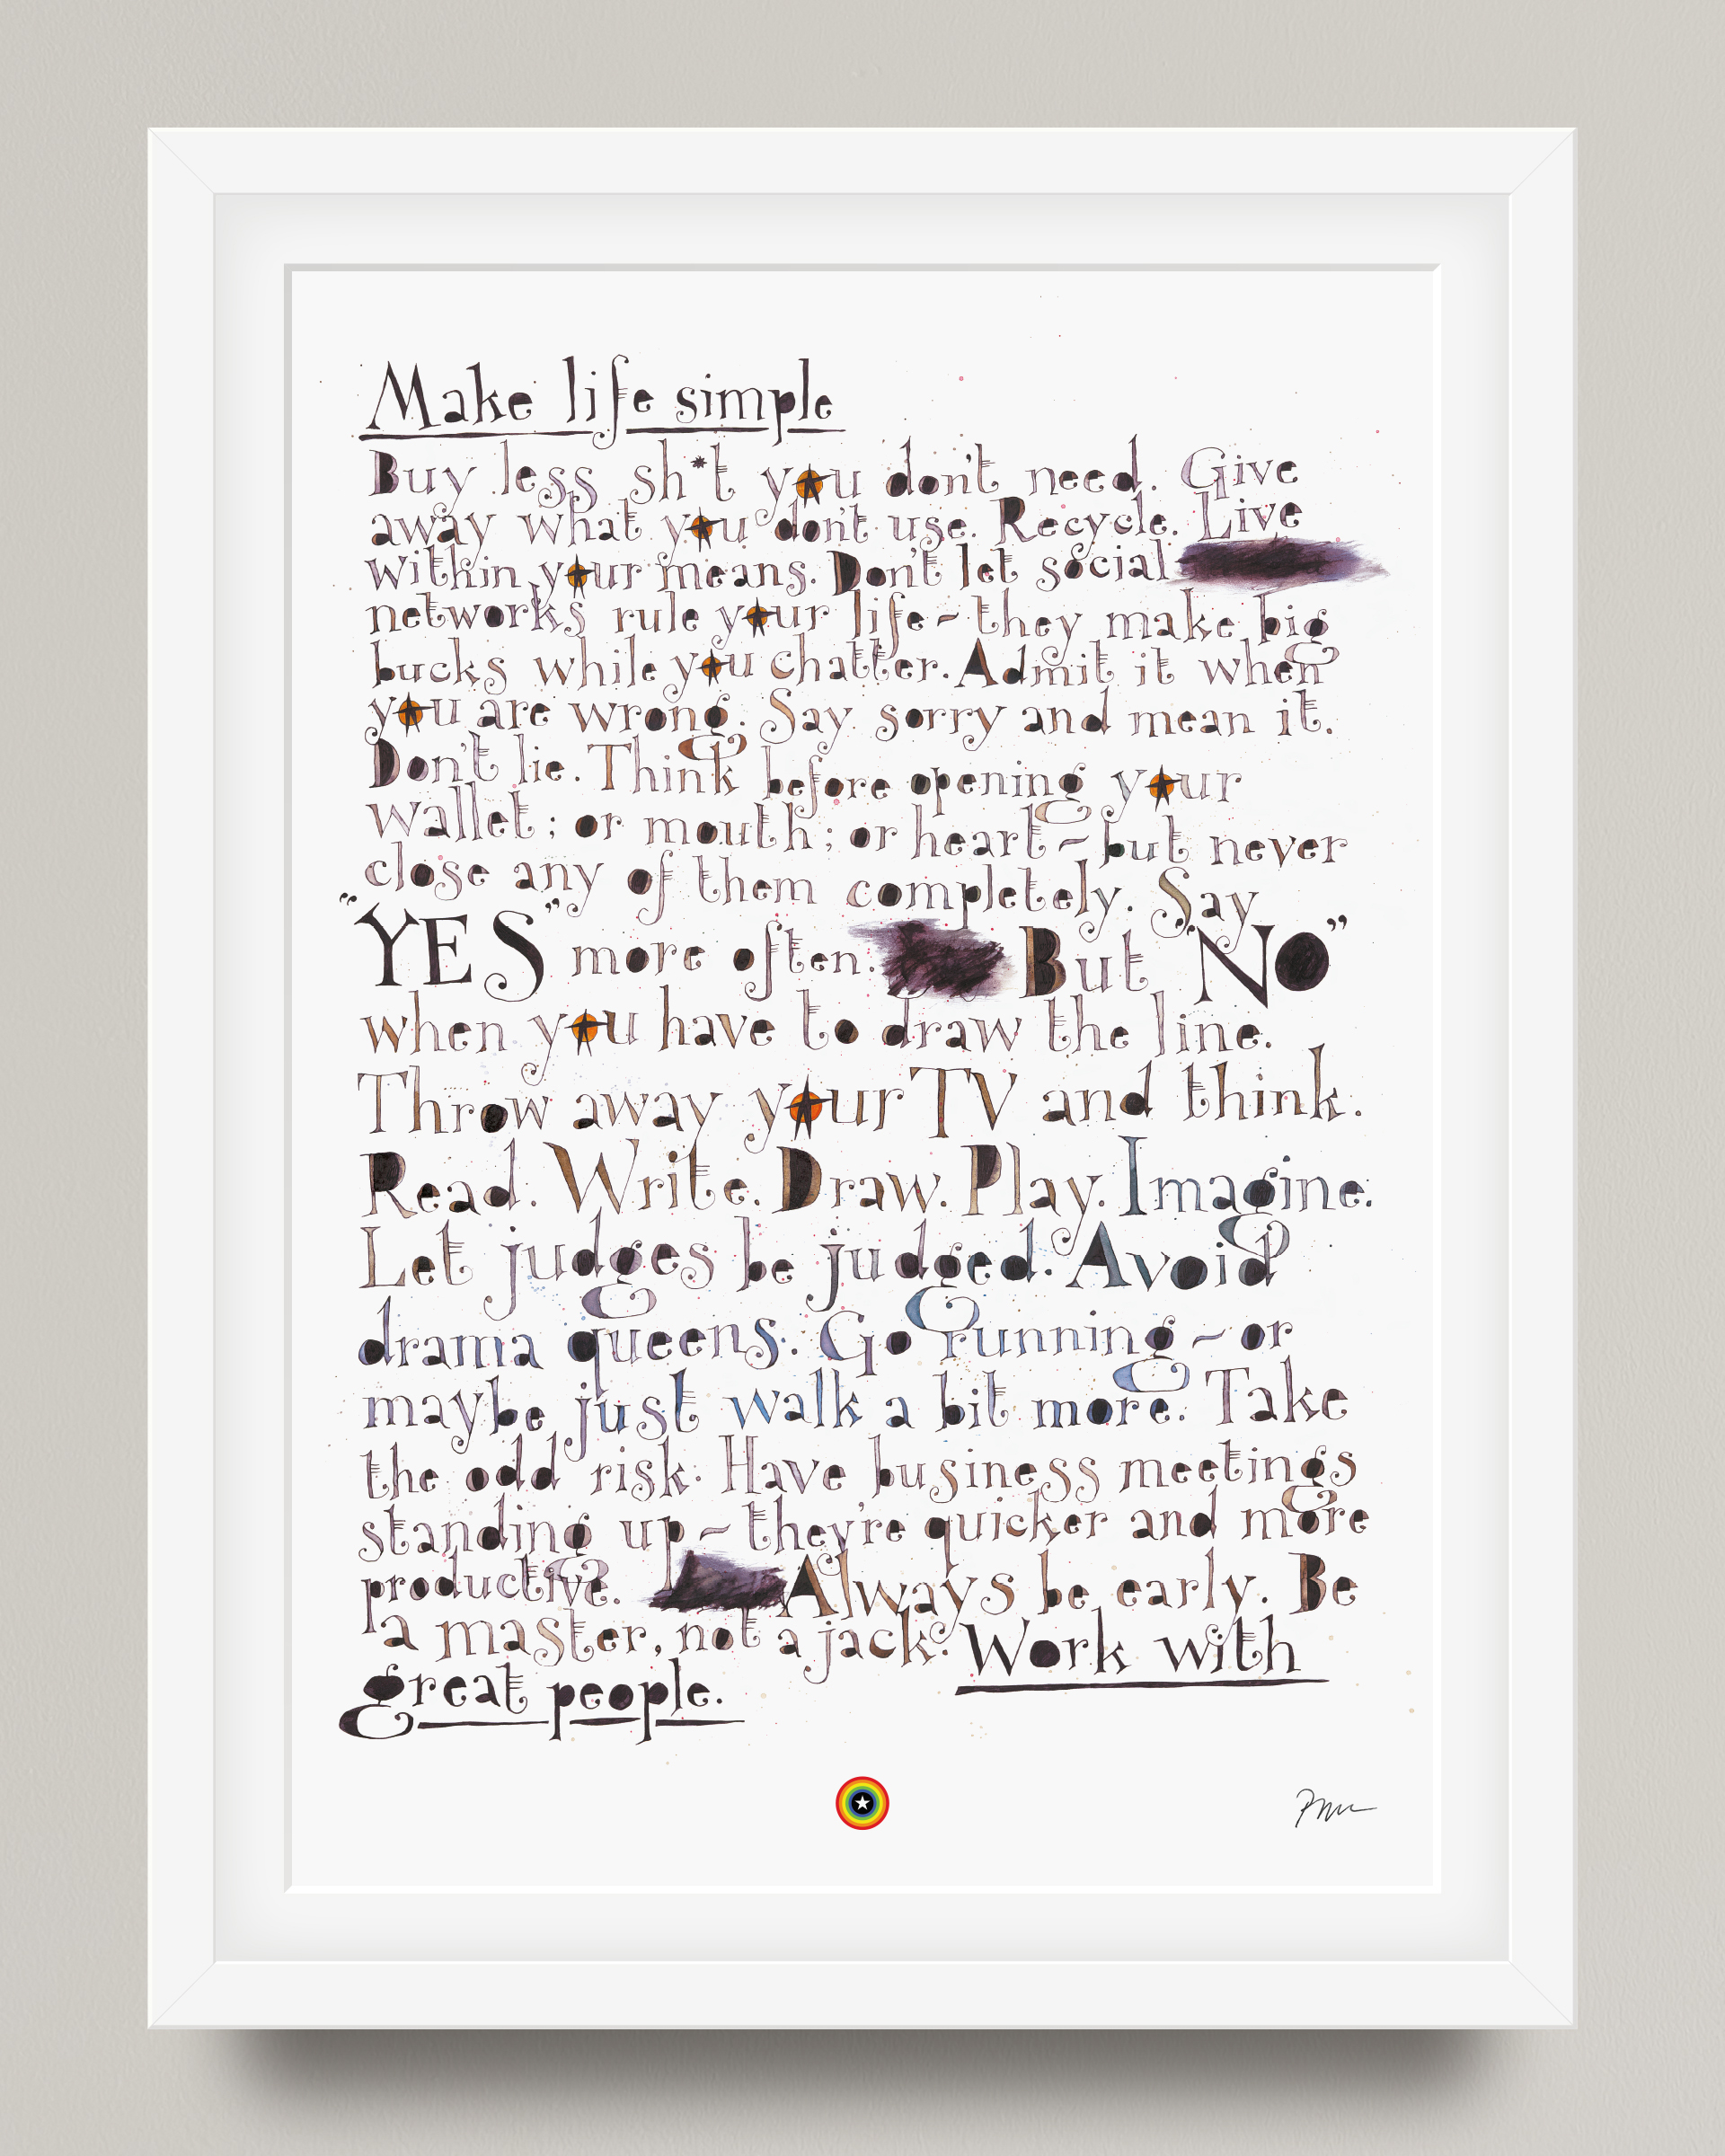 Make life simple
Buy less sh*t you don't need. Give
away what you don't use. Recycle. Live
within your means. Don't let social
networks rule your life ~ they make big
bucks while you chatter. Admit it when
you are wrong. Say sorry and mean it.
Don't lie. Think before opening your
wallet; or mouth; or heart ~ but never
close any of them completely. Say
"YES" more often. But "NO"
when you have to draw the line.
Throw away your TV and think.
Read. Write. Draw. Play. Imagine.
Let judges be judged. Avoid
drama queens. Go running ~ or
maybe just walk a bit more. Take
the odd risk. Have business meetings
standing up ~ they're quicker and more
productive. Always be early. Be
a master, not a jack. Work with
great people.